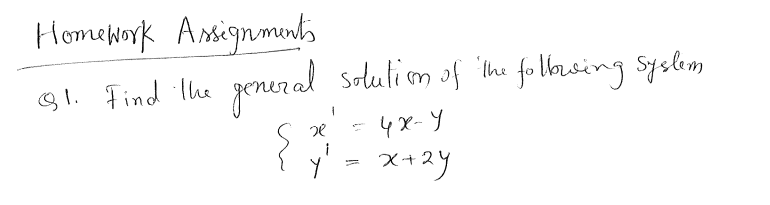 Homework Assignments
Q1. Find the general solution of the following system
{ x' = 4x-y
y' = x+2y